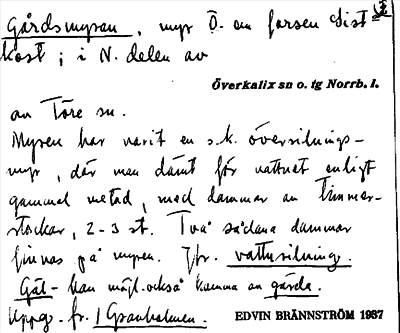 Gårdsmyran, myr Ö. om forsen Sist
kost; i N. delen av
Överkalix sn o. tg Norrb. l.
om Töre sn.
Myren har varit en s.k. översilnings-
myr, där man dämt för vattnet enligt
gammal metod, med dammar av timmer-
stockar, 2-3 st. Två sådana dammar
finnas på myren. Jfr. vattusilning.
Gål- kan möjl. också komma av gärda.
Uppg. fr.
EDVIN BRÄNNSTRÖM 1987